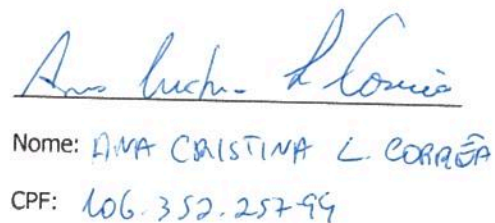 Ana Cristina L Corrêa
Nome: ANA CRISTINA L. CORRÊA
CPF: 106.352.257-94